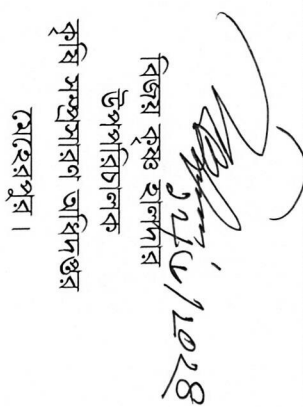 বিজয় কৃষ্ণ হালদার
উপপরিচালক
কৃষি সম্প্রসারণ অধিদপ্তর
মেহেরপুর।